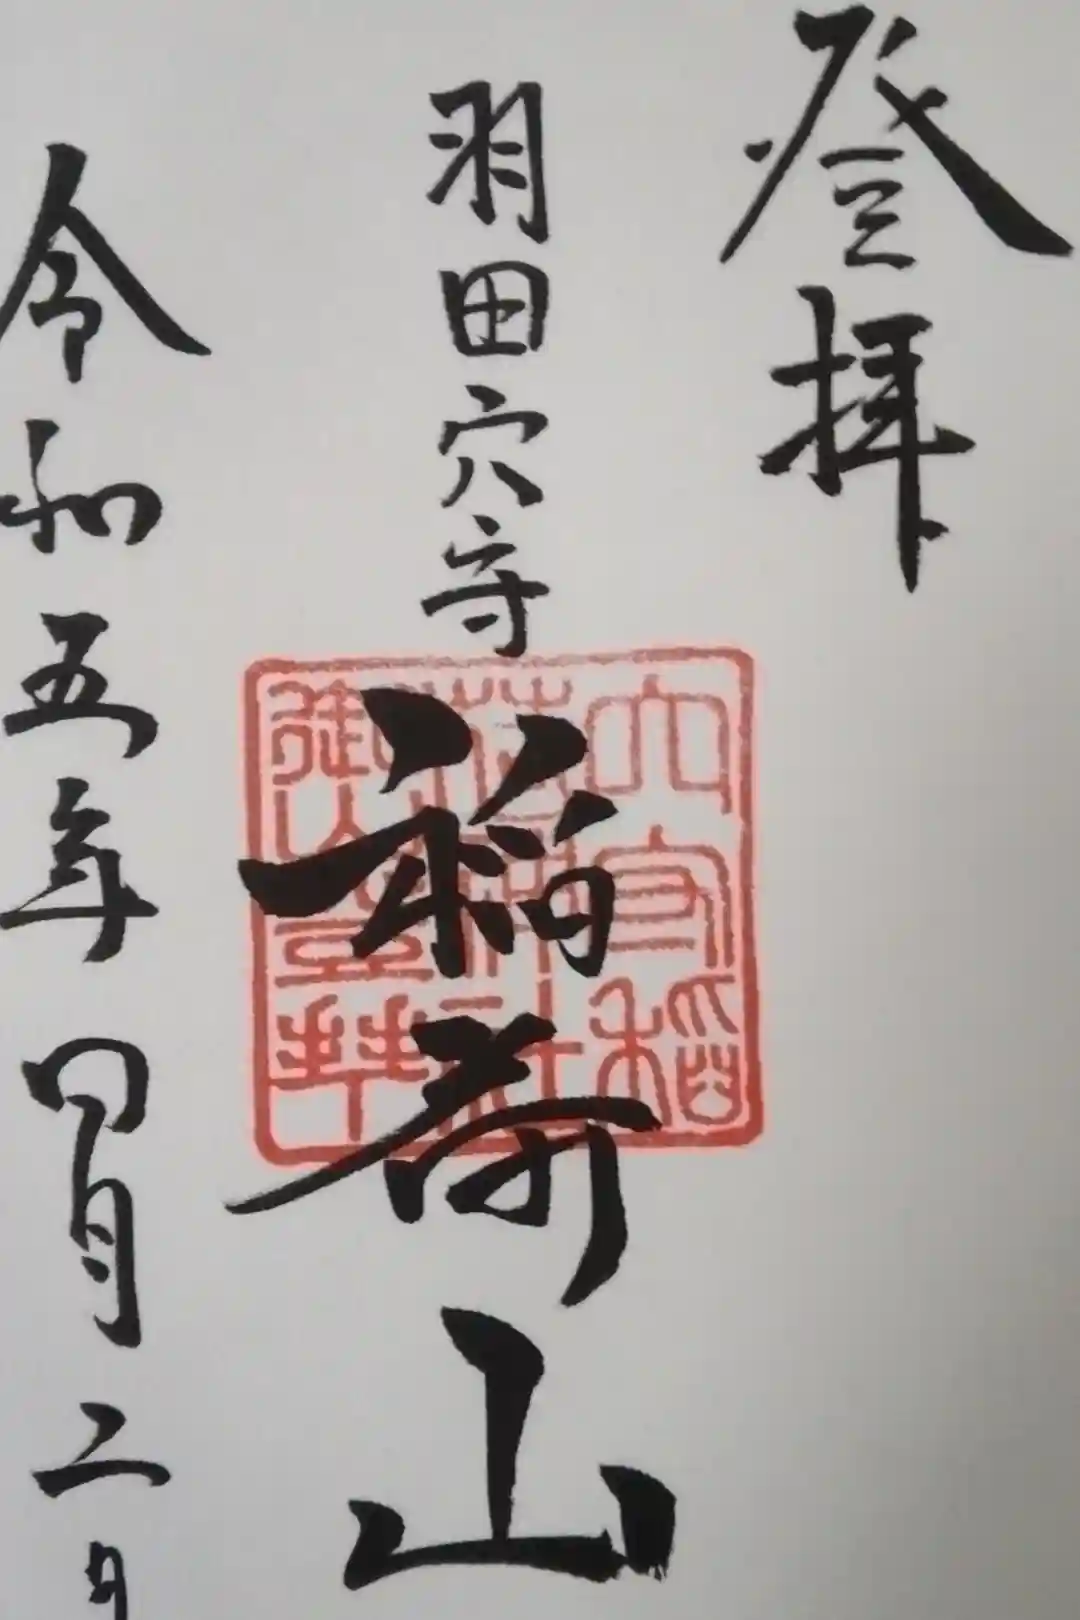 登拝
羽田穴守
稲荷山
穴守稲
荷神社
令和五年四月二日